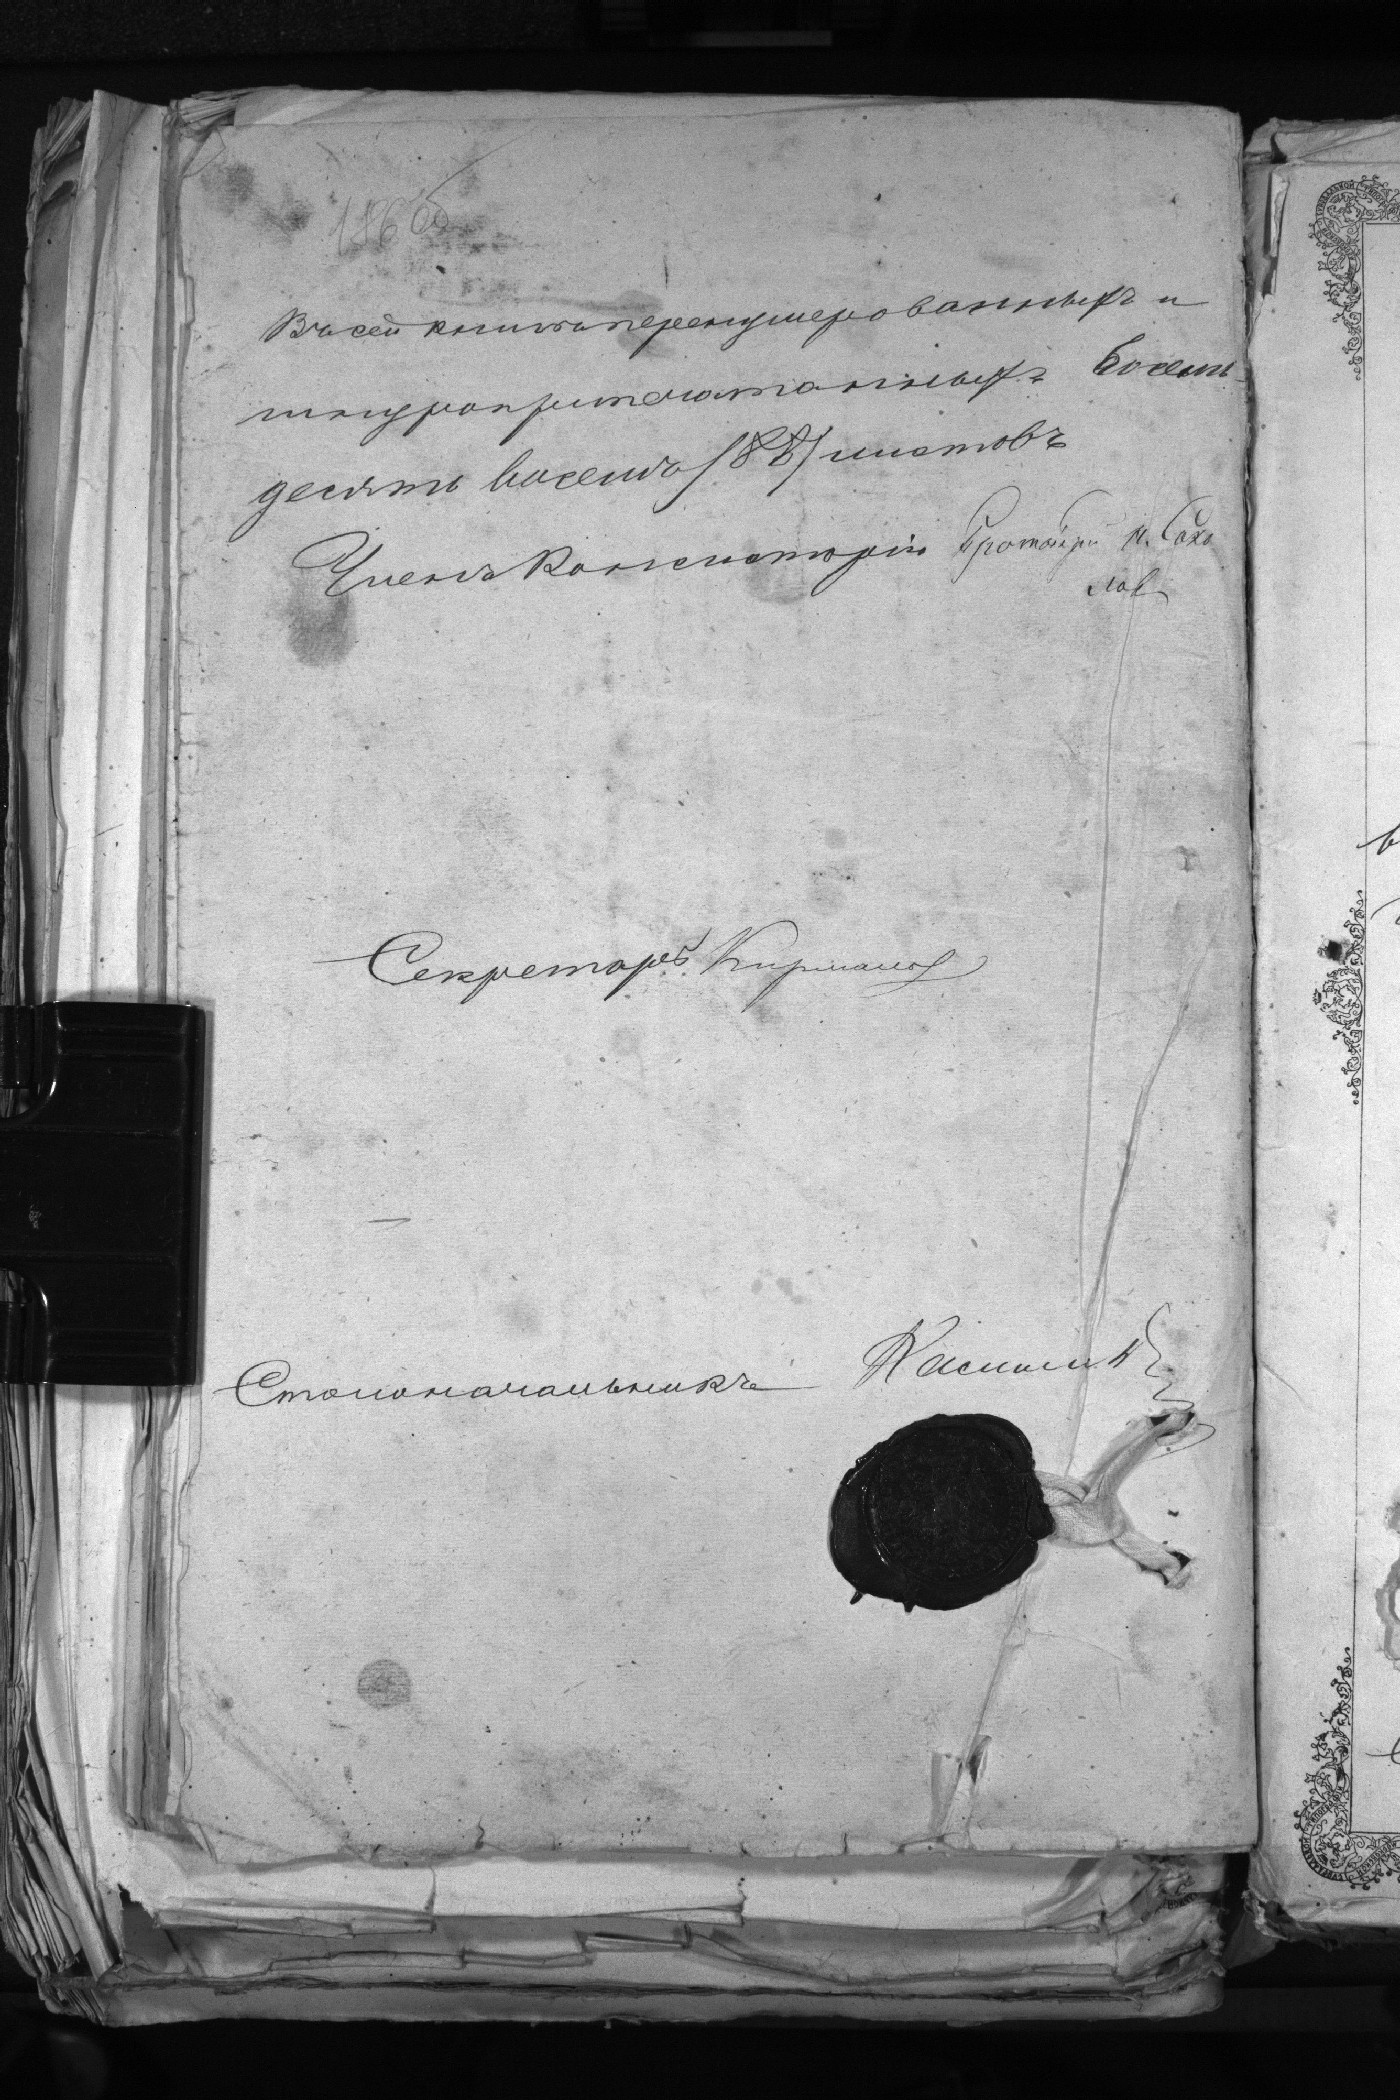 186 об
Въ сей книгѣ перенумерованныхъ и
шнуроприпечатанныхъ восемь
десять восемь /88/ листовъ
Членъ Консисторіи Протоіерей Н. Соко
лов
Секретарь
Столоначальникъ